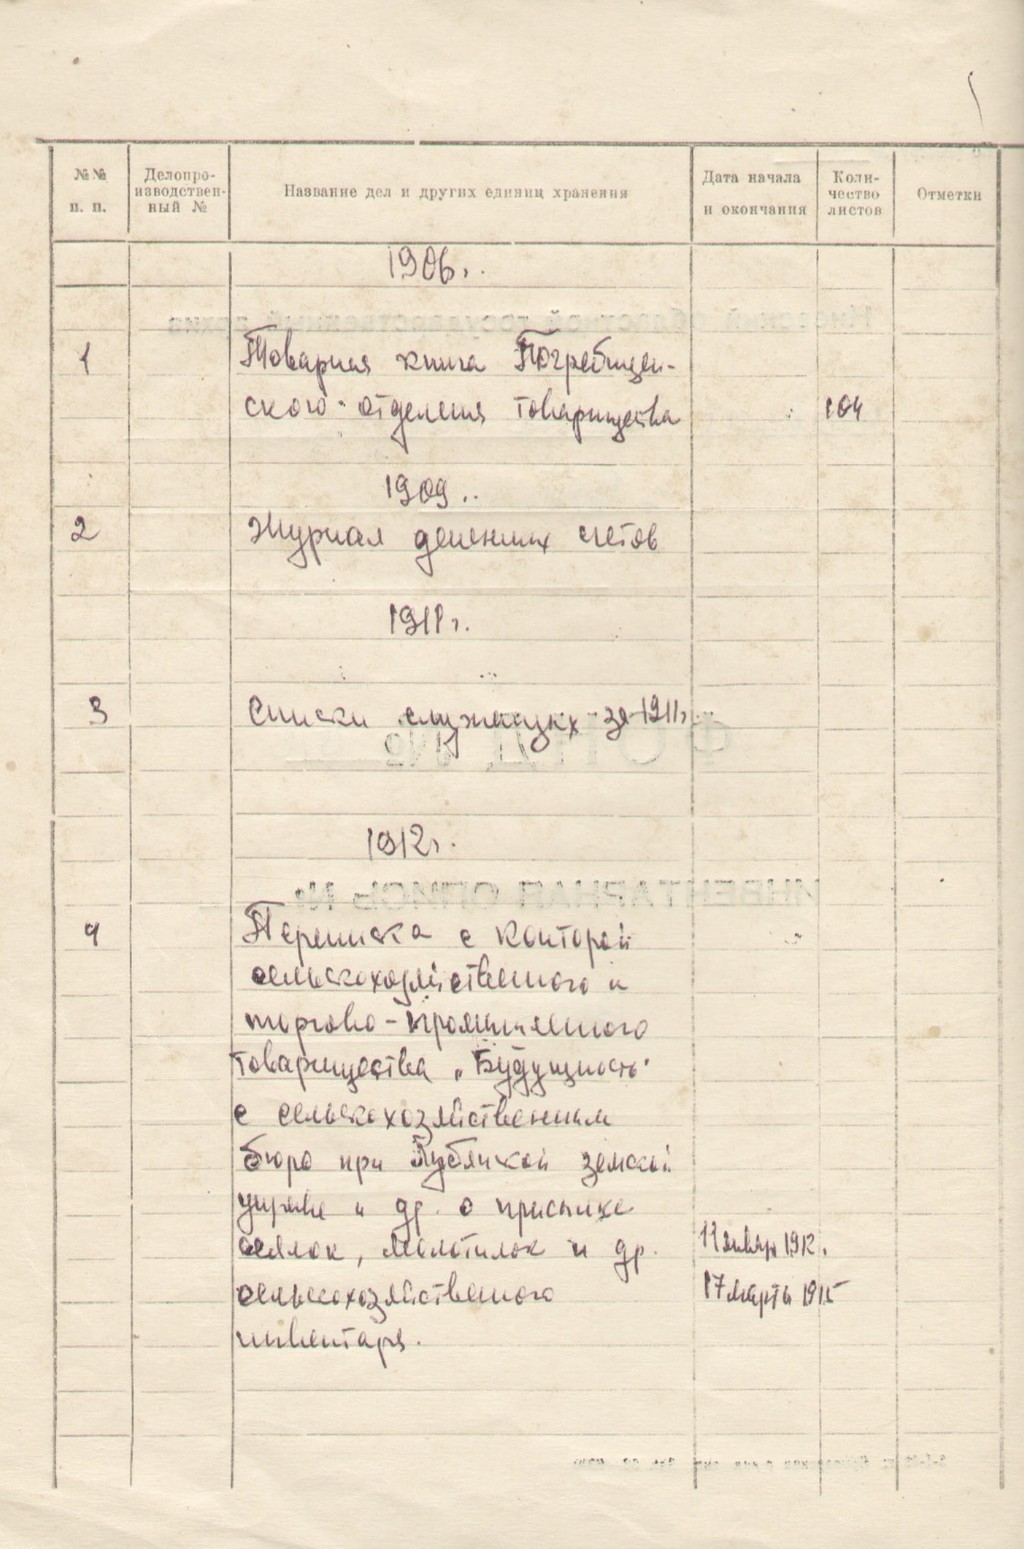 №№ п. п.
Делопроизводственный №
Название дел и других единиц хранения
Дата начала и окончания
Количество листов
Отметки
1906г.
1 Товарная книга Погребищен-
ского отделения товарищества 104
1909г.
2 Журнал денежных счетов
1911г.
3 Списки служащих за 1911г.
1912г.
4 Переписка с конторой
сельскохозяйственного и
торгово-промышленного
товарищества „Будущность"
с сельскохозяйственным
бюро при земской
управе и др. о присылке
сеялок, молотилок и др. 1912г.
сельскохозяйственного 17 марта 1915
инвентаря.